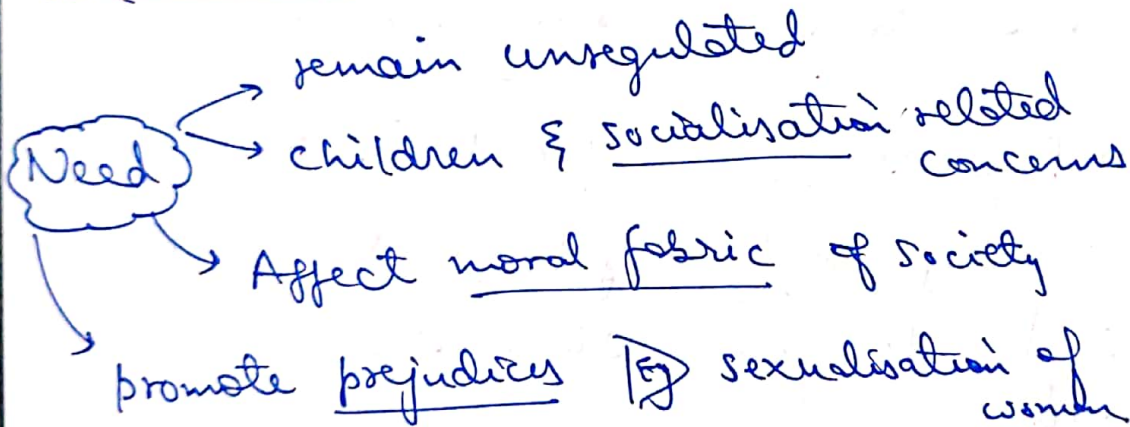 remain unregulated
Need
children & socialisation related
concerns
Affect moral fabric of society
promote prejudices Eg sexualisation of
women